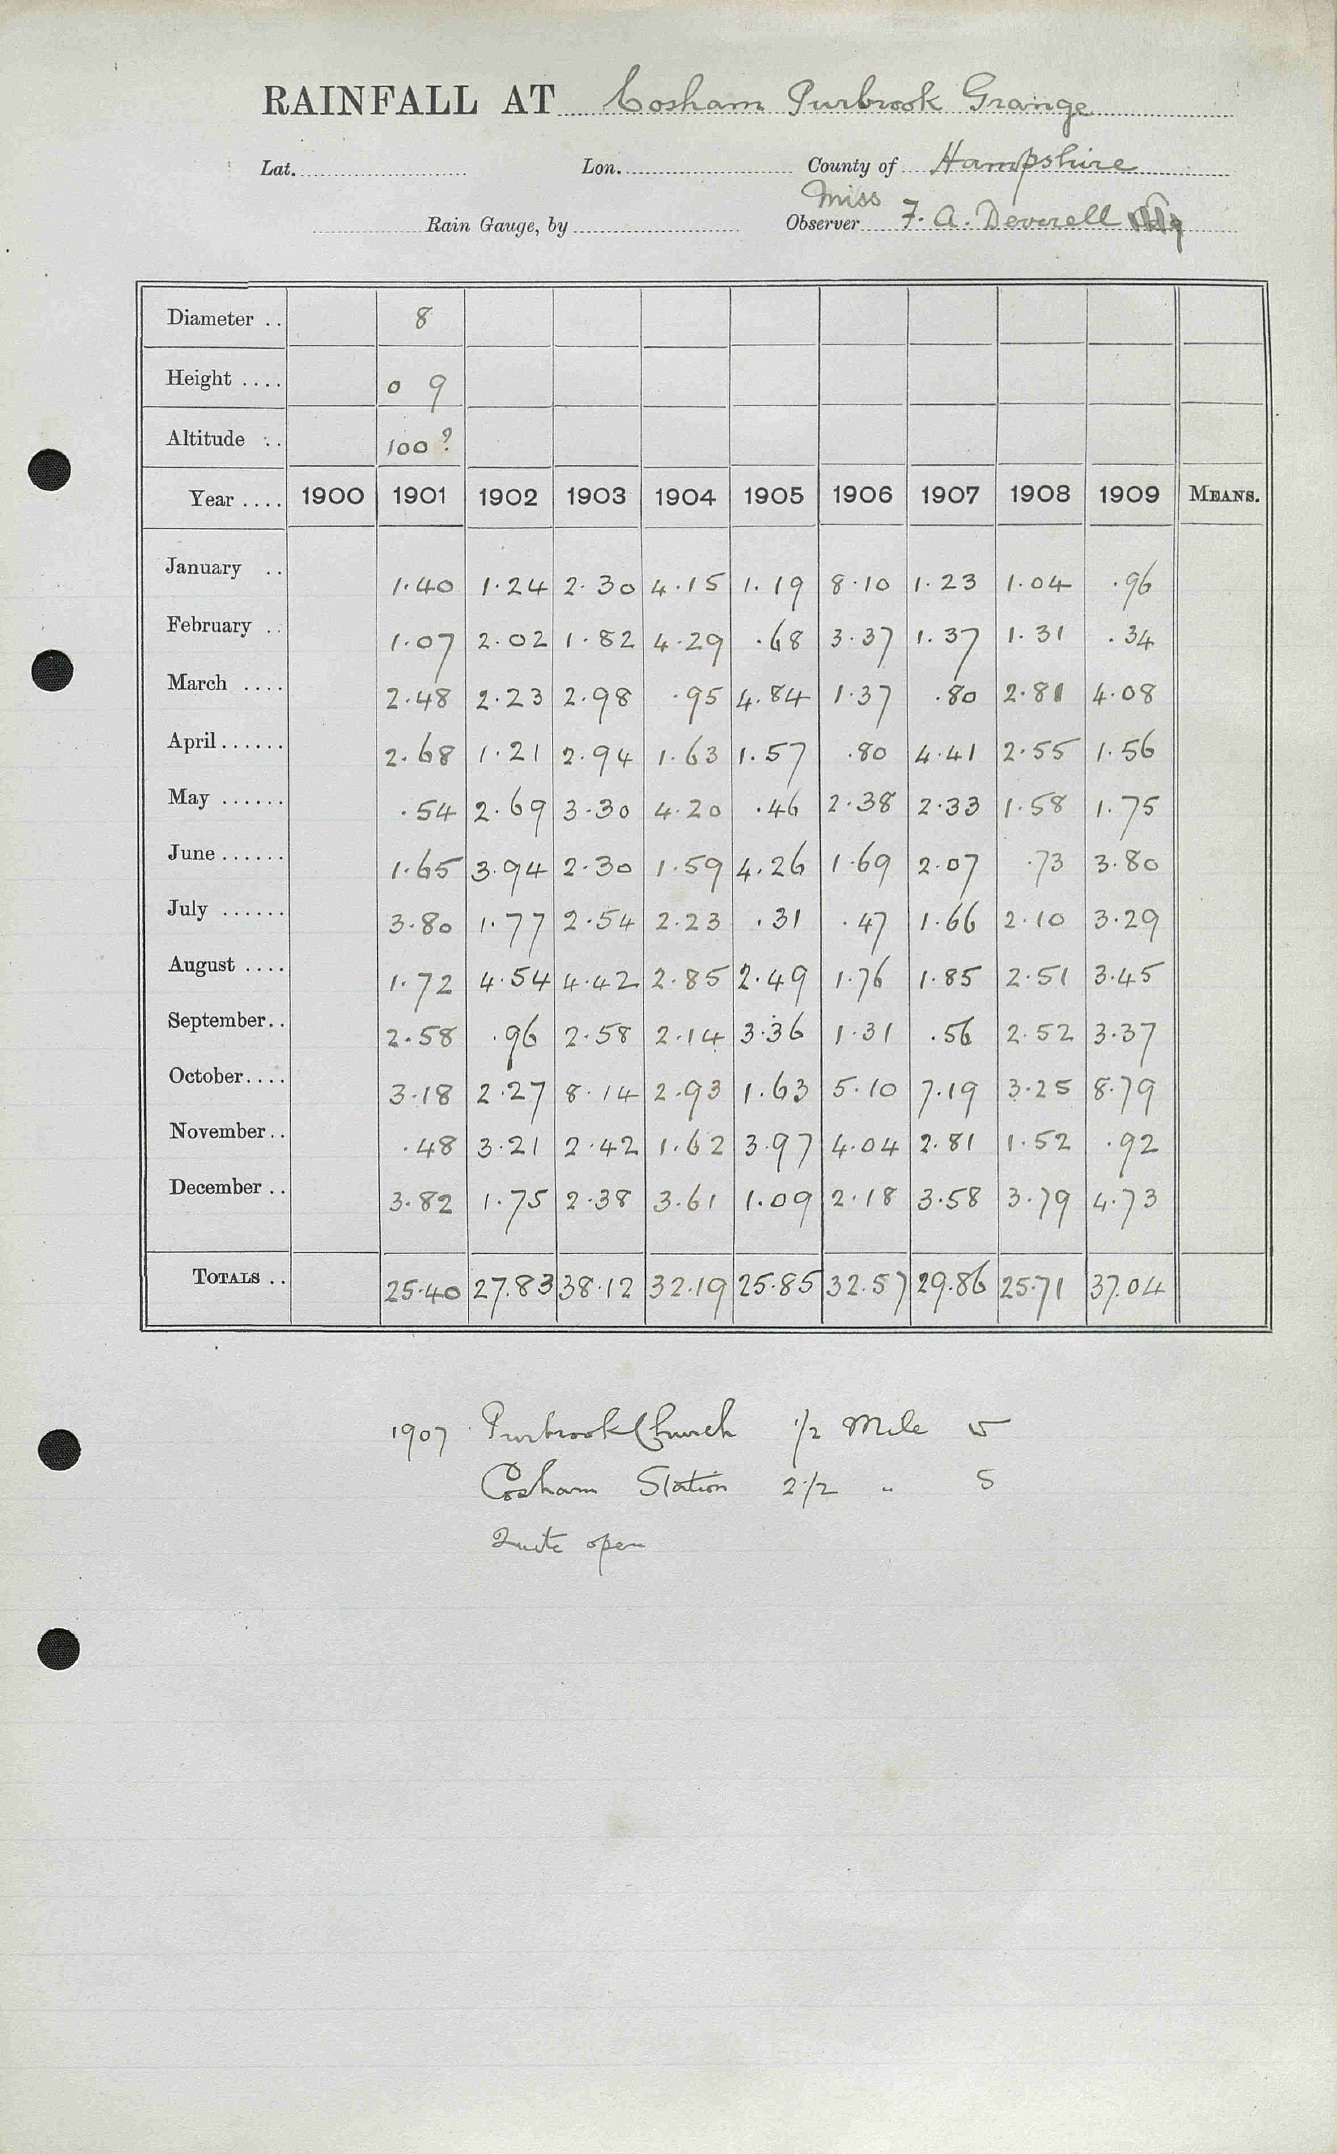 RAINFALL AT Cosham Purbrook Grange
Lat. Lon. County of Hampshire
Miss
Rain Gauge, by Observer F. A. Deverell
Diameter .. 8
Height .... 0 9
Altitude .. 100?
Year .... 1900 1901 1902 1903 1904 1905 1906 1907 1908 1909 MEANS.
January .. 1.40 1.24 2.30 4.15 1.19 8.10 1.23 1.04 .96
February .. 1.07 2.02 1.82 4.29 .68 3.37 1.37 1.31 .34
March .... 2.48 2.23 2.98 .95 4.84 1.37 .80 2.81 4.08
April...... 2.68 1.21 2.94 1.63 1.57 .80 4.41 2.55 1.56
May ...... .54 2.69 3.30 4.20 .46 2.38 2.33 1.58 1.75
June...... 1.65 3.94 2.30 1.59 4.26 1.69 2.07 .73 3.80
July ...... 3.80 1.77 2.54 2.23 .31 .47 1.66 2.10 3.29
August .... 1.72 4.54 4.42 2.85 2.49 1.76 1.85 2.51 3.45
September.. 2.58 .96 2.58 2.14 3.36 1.31 .56 2.52 3.37
October.... 3.18 2.27 8.14 2.93 1.63 5.10 7.19 3.25 8.79
November.. .48 3.21 2.42 1.62 3.97 4.04 2.81 1.52 .92
December .. 3.82 1.75 2.38 3.61 1.09 2.18 3.58 3.79 4.73
TOTALS .. 25.40 27.83 38.12 32.19 25.85 32.57 29.86 25.71 37.04
1907 Purbrook Church 1/2 Mile W
Cosham Station 2 1/2 " S
Quite open